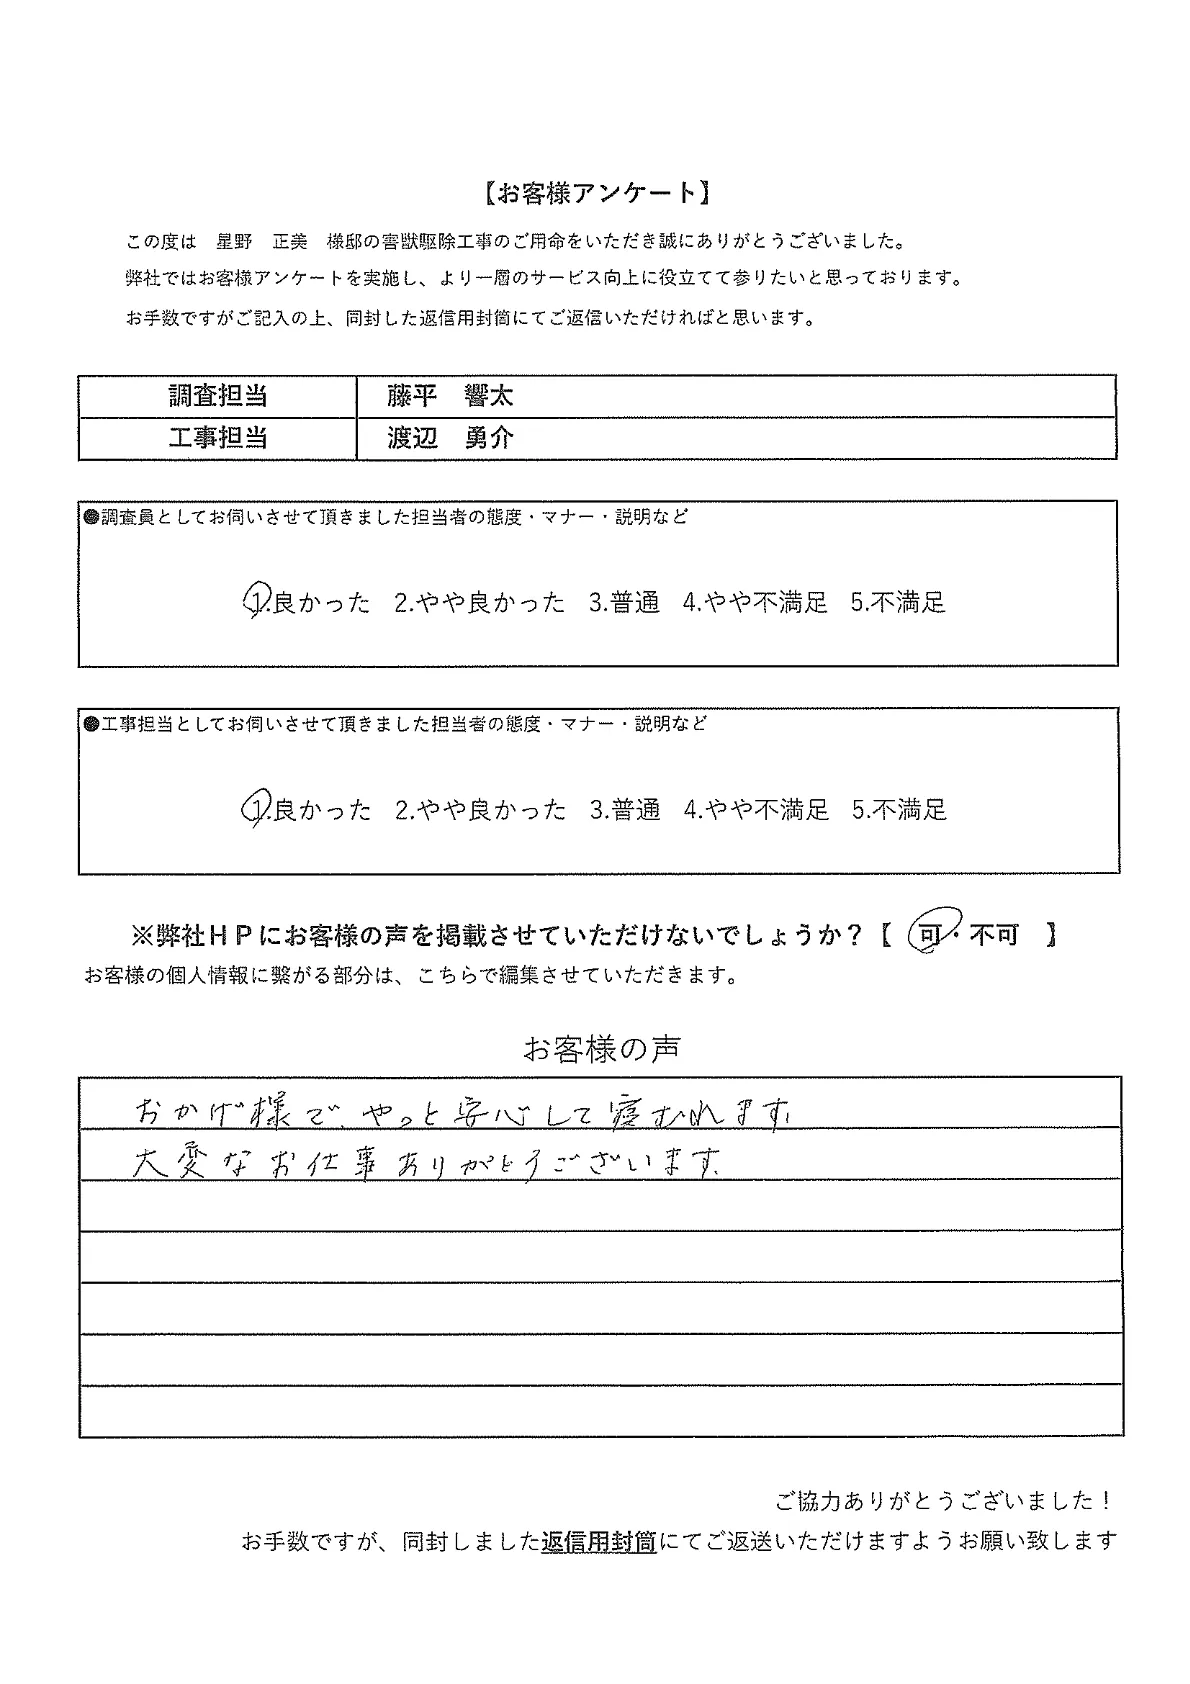 【お客様アンケート】
この度は　星野　正美　様邸の害獣駆除工事のご用命をいただき誠にありがとうございました。
弊社ではお客様アンケートを実施し、より一層のサービス向上に役立てて参りたいと思っております。
お手数ですがご記入の上、同封した返信用封筒にてご返信いただければと思います。
調査担当　藤平　響太
工事担当　渡辺　勇介
●調査員としてお伺いさせて頂きました担当者の態度・マナー・説明など
1.良かった　2.やや良かった　3.普通　4.やや不満足　5.不満足
●工事担当としてお伺いさせて頂きました担当者の態度・マナー・説明など
1.良かった　2.やや良かった　3.普通　4.やや不満足　5.不満足
※弊社ＨＰにお客様の声を掲載させていただけないでしょうか？【　可・不可　】
お客様の個人情報に繋がる部分は、こちらで編集させていただきます。
お客様の声
おかげ様で、やっと安心して寝むれます。
大変なお仕事ありがとうございます。
ご協力ありがとうございました！
お手数ですが、同封しました返信用封筒にてご返送いただけますようお願い致します